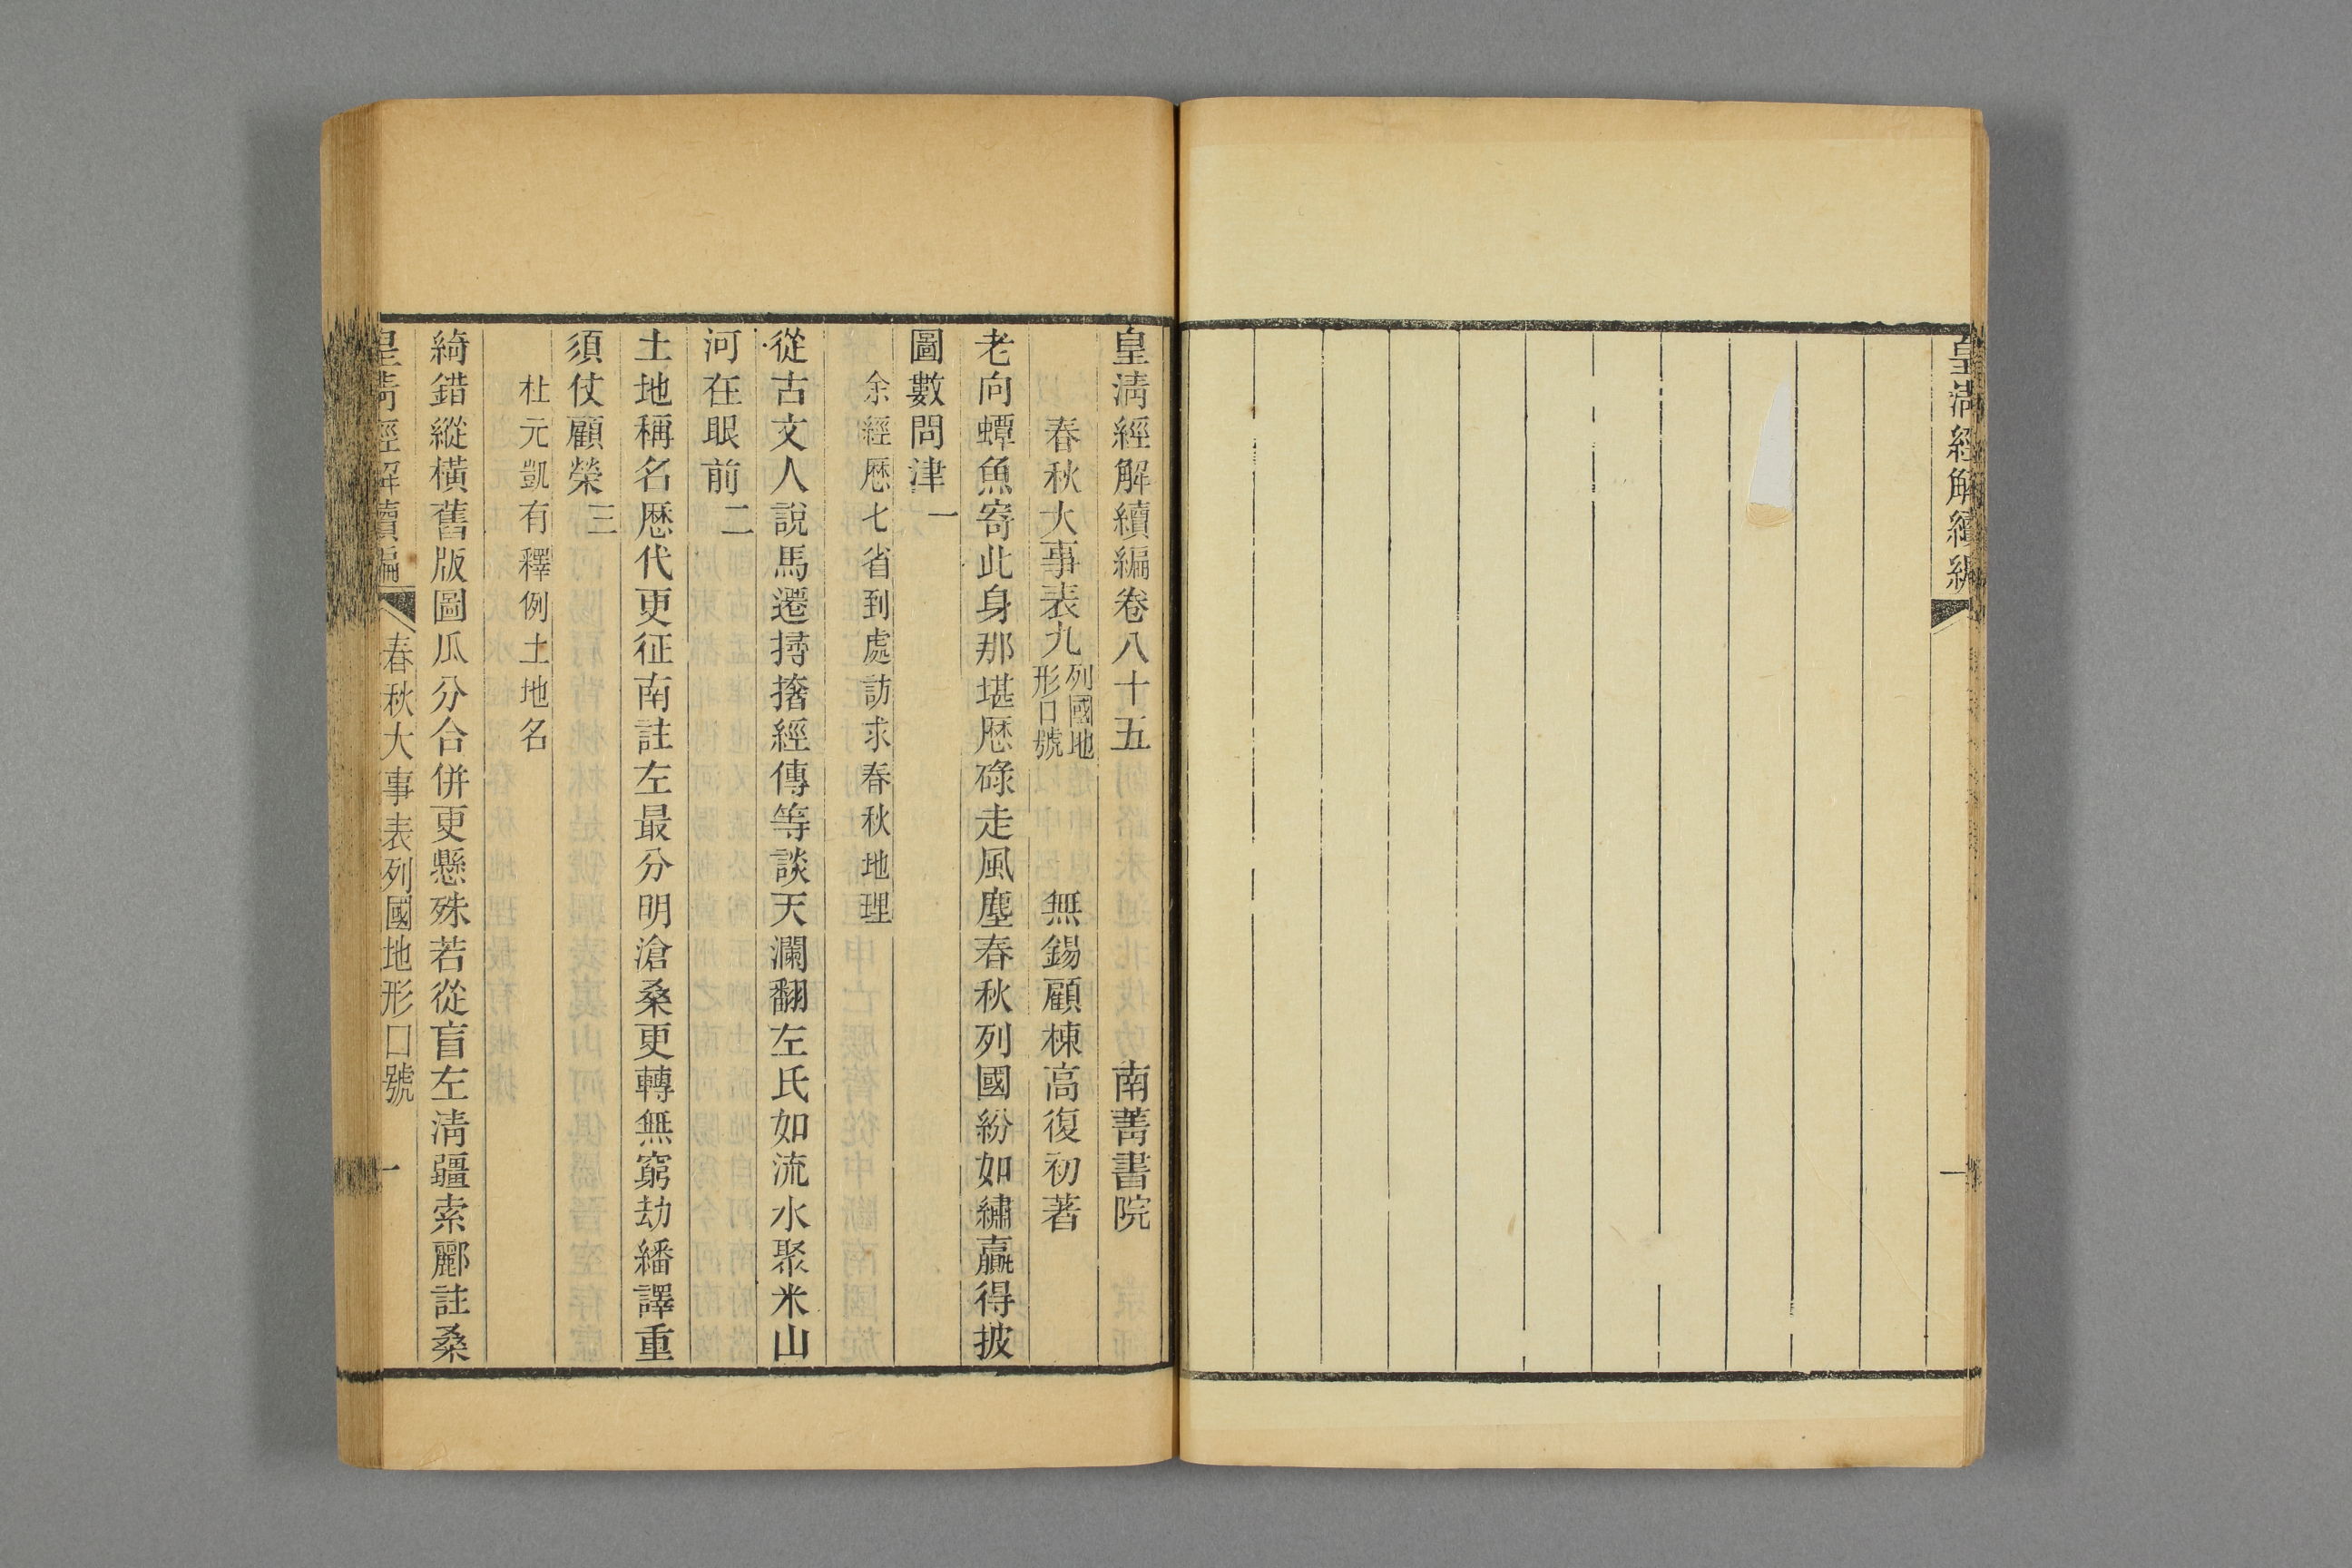 皇清經解續編
一
皇清經解續編卷八十五 南菁書院
春秋大事表九 列國地形口號 無錫顧棟高復初著
老向蟫魚寄此身那堪歷碌走風塵春秋列國紛如繡贏得披
圖數問津一
余經歷七省到處訪求春秋地理
從古文人說馬遷撏撦經傳等談天瀾翻左氏如流水聚米山
河在眼前二
土地稱名歷代更征南註左最分明滄桑更轉無窮劫繙譯重
須仗顧榮三
杜元凱有釋例土地名
綺錯縱橫舊版圖瓜分合併更懸殊若從盲左清疆索酈註桑
皇清經解續編 春秋大事表列國地形口號 一